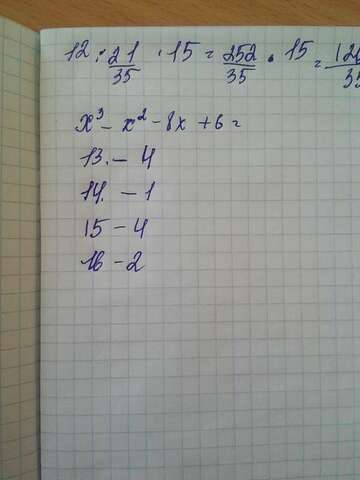 12 : 21/35 · 15 = 252/35 · 15 =
x³ - x² - 8x + 6 =
13. - 4
14. - 1
15 - 4
16 - 2